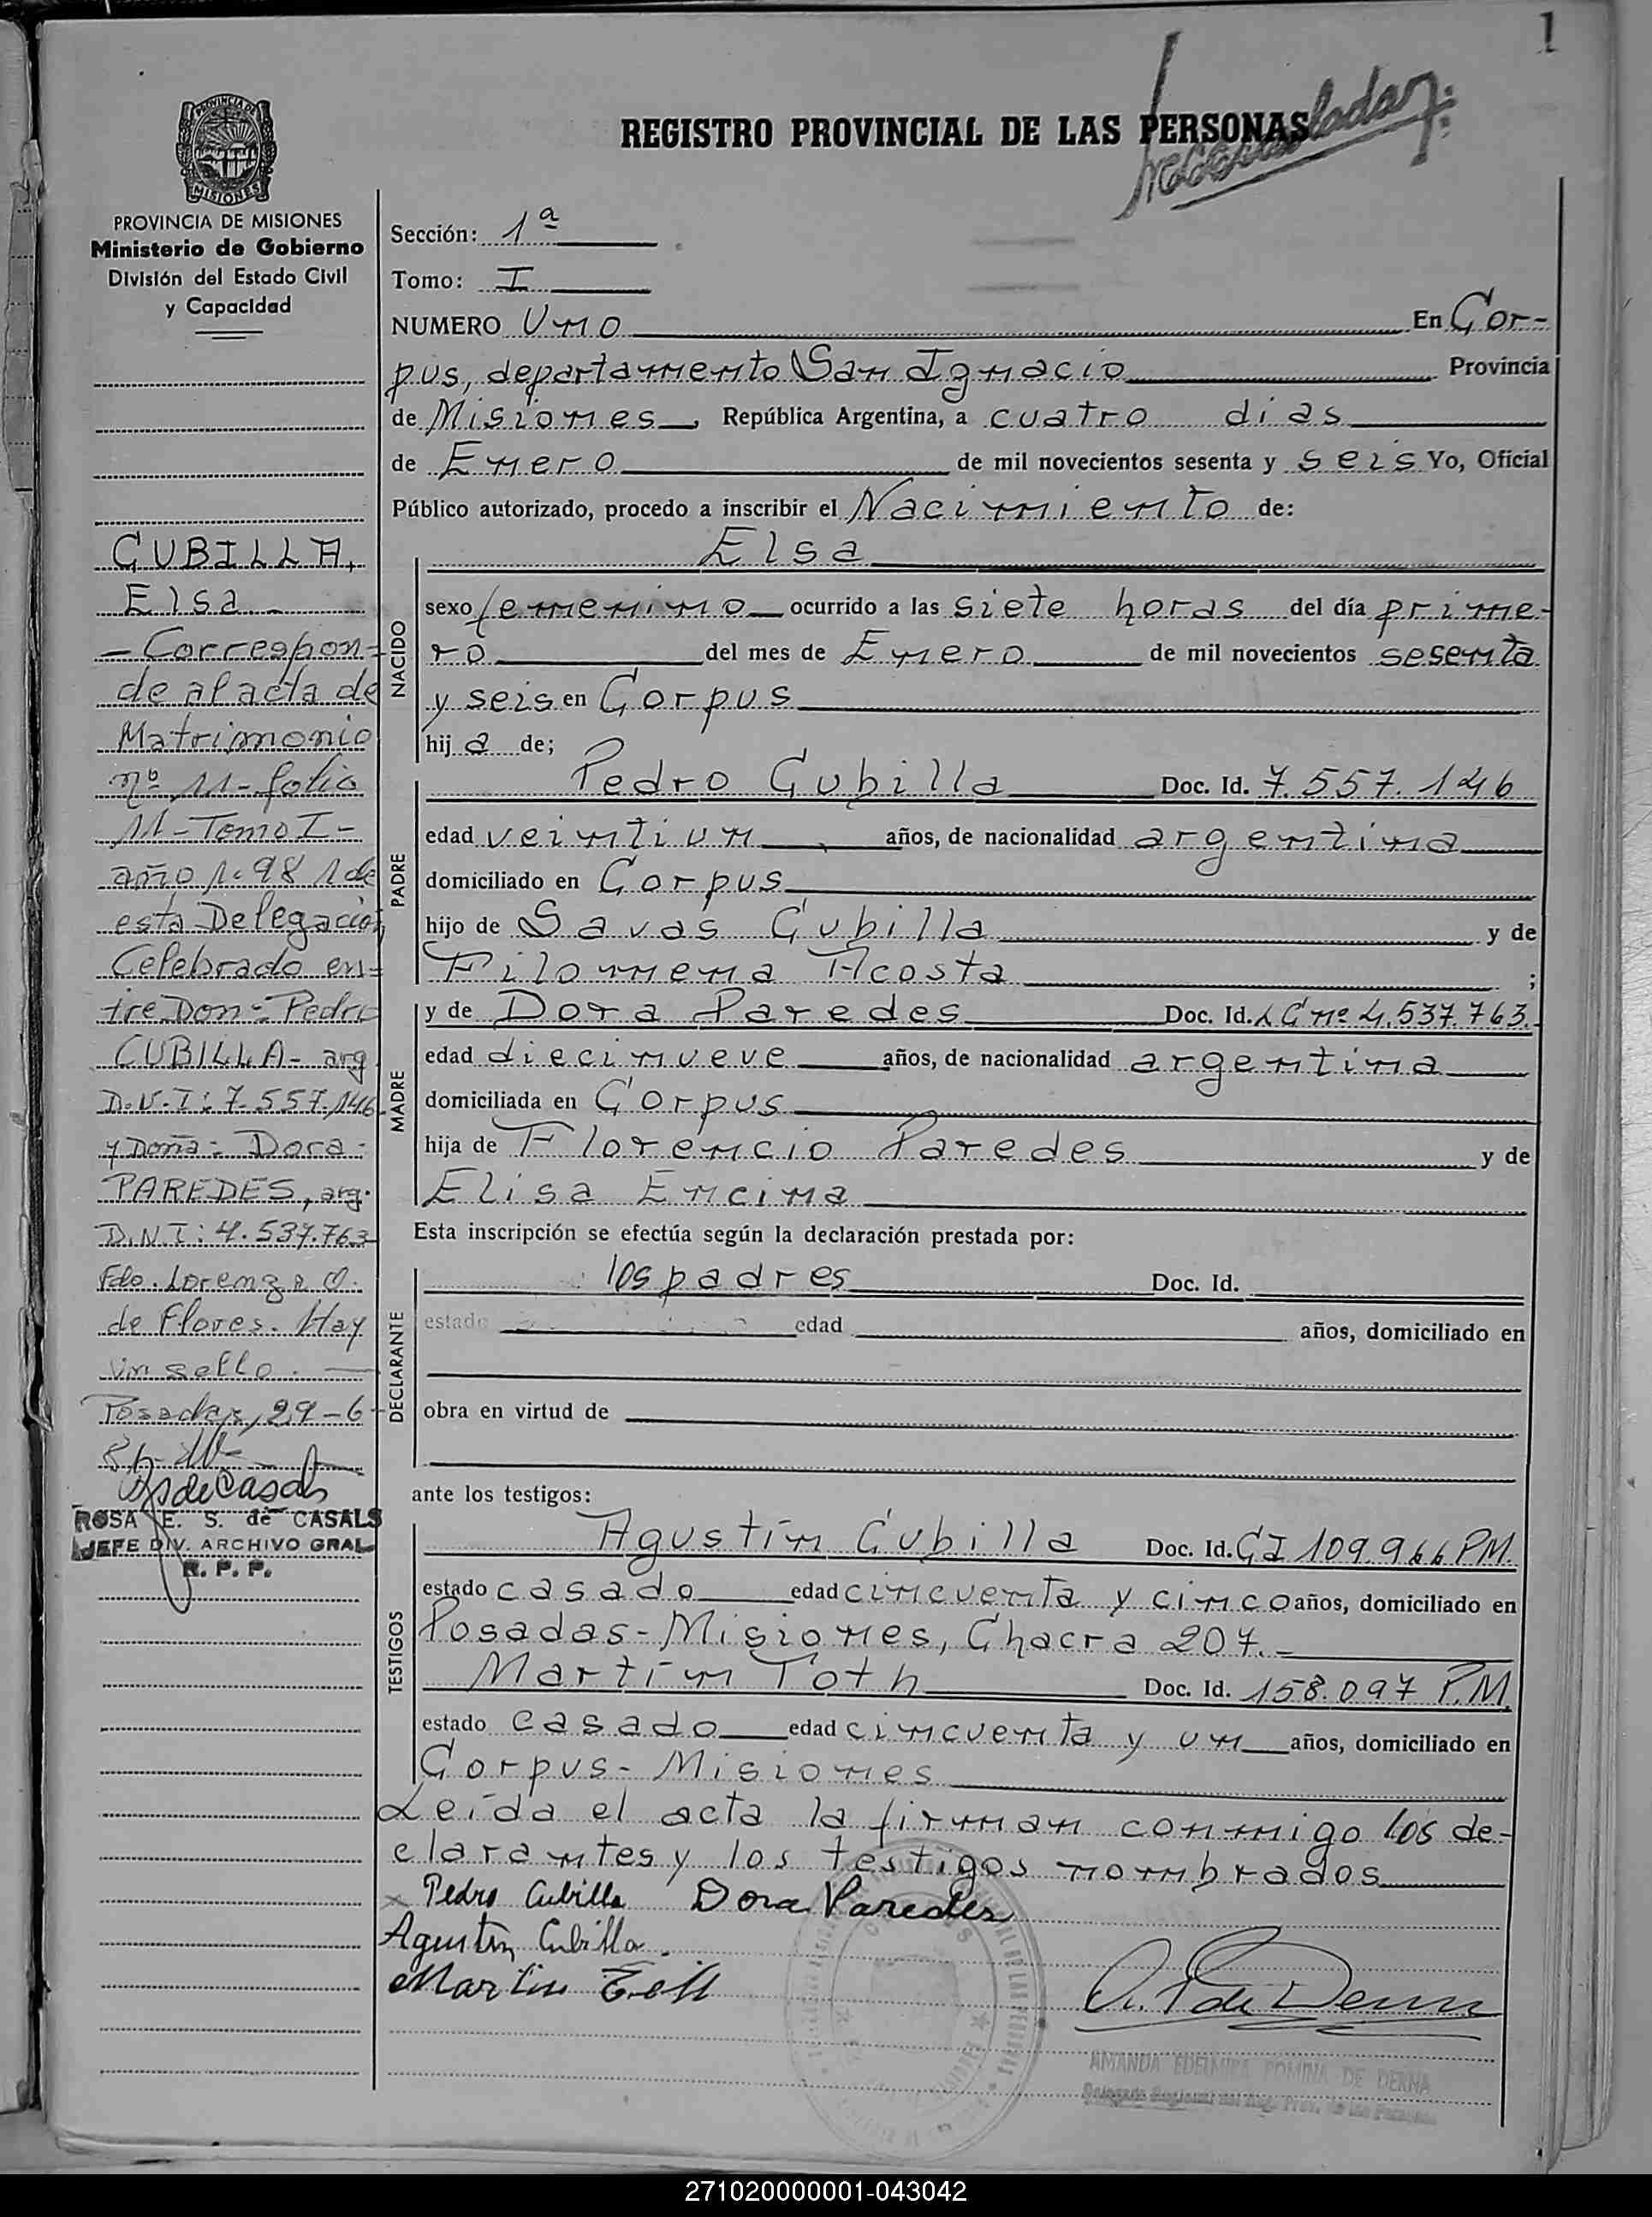 1
PROVINCIA DE
MISIONES
REGISTRO PROVINCIAL DE LAS PERSONAS
PROVINCIA DE MISIONES
Ministerio de Gobierno
División del Estado Civil
y Capacidad
CUBILLA,
Elsa -
- Correspon-
de al acta de
Matrimonio
nº 11 - folio
11 - Tomo I -
año 1.981 de
esta Delegación
Celebrado en=
tre Don = Pedro
CUBILLA - arg
D.N.I: 7.557.146
y Doña: Dora
PAREDES, arg.
D.N.I: 4.537.763
Fdo. Lorenza O.
de Flores. Hay
un sello. —
Posadas, 29-6-
81-
ROSA E. S. de CASALS
JEFE DIV. ARCHIVO GRAL
R. P. P.
Sección: 1ª
Tomo: I
NUMERO Uno En Cor-
pus, departamento San Ignacio Provincia
de Misiones, República Argentina, a cuatro dias
de Enero de mil novecientos sesenta y seis Yo, Oficial
Público autorizado, procedo a inscribir el Nacimiento de:
NACIDO
Elsa
sexo femenino ocurrido a las siete horas del día prime-
ro del mes de Enero de mil novecientos sesenta
y seis en Corpus
hij a de;
PADRE
Pedro Cubilla Doc. Id. 7.557.146
edad veintiun años, de nacionalidad argentina
domiciliado en Corpus
hijo de Savas Cubilla y de
Filomena Acosta ;
MADRE
y de Dora Paredes Doc. Id. LC nº 4.537.763.
edad diecinueve años, de nacionalidad argentina
domiciliada en Corpus
hija de Florencio Paredes y de
Elisa Encina
Esta inscripción se efectúa según la declaración prestada por:
DECLARANTE
los padres Doc. Id.
estado edad años, domiciliado en
obra en virtud de
ante los testigos:
TESTIGOS
Agustín Cubilla Doc. Id. CI 109.966 PM.
estado casado edad cincuenta y cinco años, domiciliado en
Posadas - Misiones, Chacra 207.-
Martín Toth Doc. Id. 158.097 P.M.
estado casado edad cincuenta y un años, domiciliado en
Corpus - Misiones
Leída el acta la firman conmigo los de-
clarantes y los testigos nombrados
Pedro Cubilla Dora Paredes
Agustin Cubilla.
Martin Toth
AMANDA EDELMIRA ROMINA DE DERNA
271020000001-043042